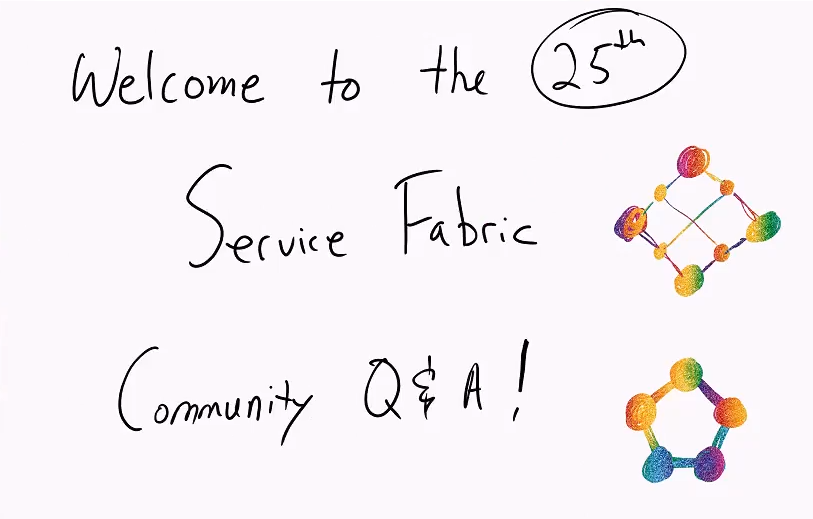 Welcome to the 25th
Service Fabric
Community Q&A!